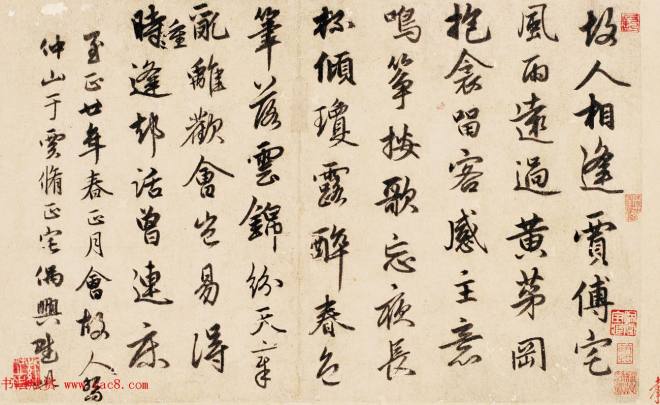 故人相逢賈傅宅
風雨遠過黄茅岡
抱衾留客感主意
鳴筝按歌忘夜長
杯傾瓊露醉春色
筆落雲錦紛天章
亂離歡會豈易得
時重逢却話曾連床
至正廿年春正月會故人馬
仲山于賈脩正宅偶興
书法欣赏 www.yac8.com